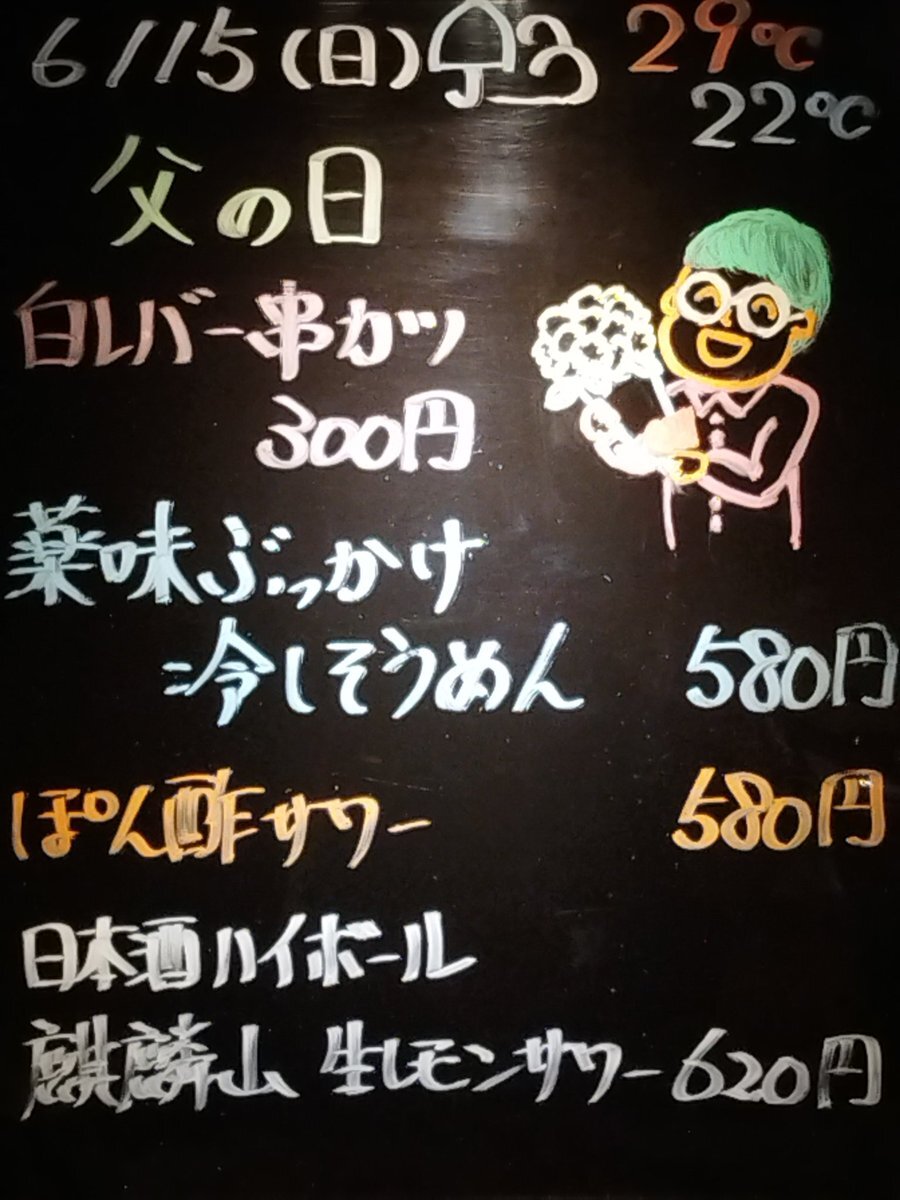 6/15(日) 29℃
22℃
父の日
白レバー串カツ
300円
薬味ぶっかけ
冷しそうめん 580円
ぽん酢サワー 580円
日本酒ハイボール
麒麟山 生レモンサワー 620円